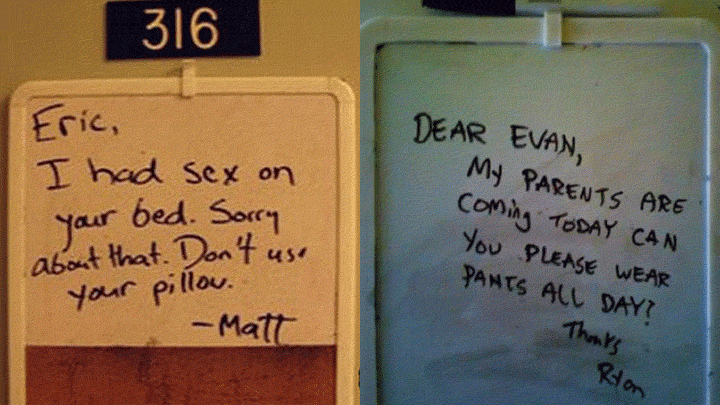 316
Eric,
I had sex on
your bed. Sorry
about that. Don't use
your pillow.
-Matt
DEAR EVAN,
My PARENTS ARE
Coming TODAY CAN
You PLEASE WEAR
PANTS ALL DAY?
Thanks
Ryan